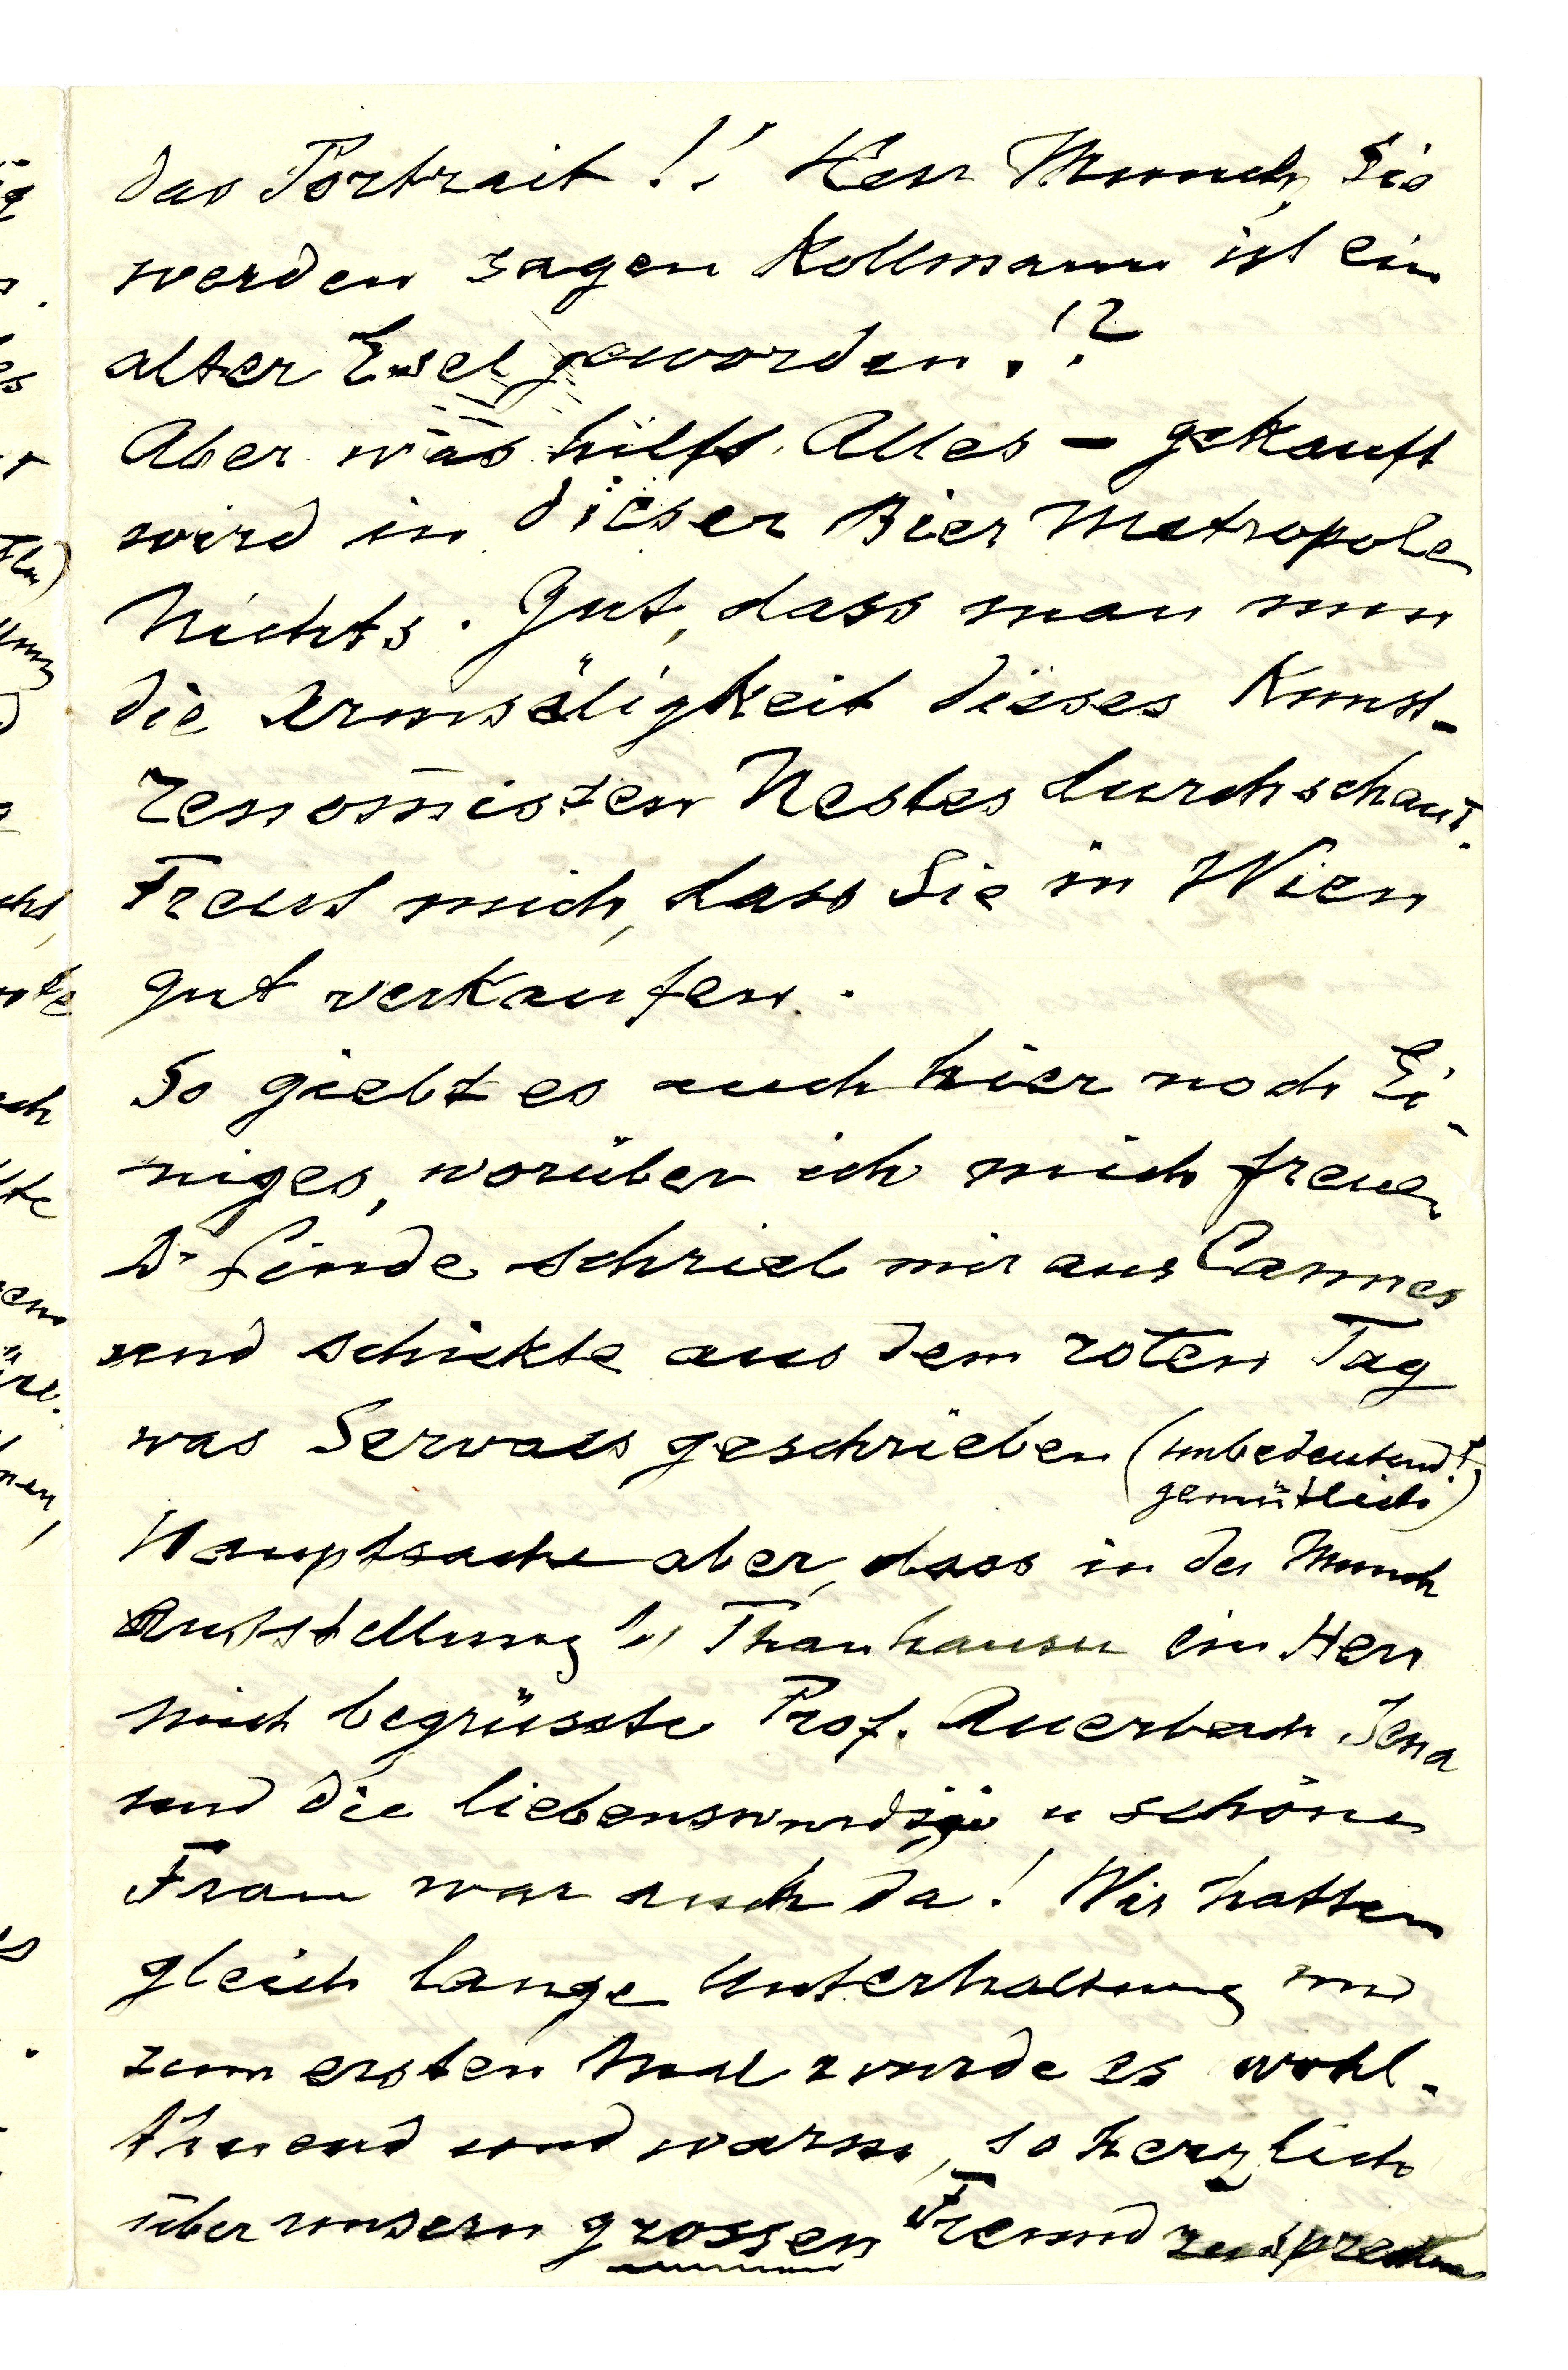 das Portrait!! Herr Munch, Sie
werden sagen Kollmann ist ein
alter Esel geworden!?
Aber was hilft Alles – gekauft
wird in dieser Bier Metropole
Nichts. Gut, dass man nun
die Armsäligkeit dieses Kunst-
renomisten Nestes durchschaut.
Freut mich, dass Sie in Wien
gut verkaufen.
So giebt es auch hier noch Ei-
niges, worüber ich mich freue
Dr Linde schrieb mir aus Cannes
und schickte aus dem roten Tag
was Servaes geschrieben (unbedeutend!
gemütlich)
Hauptsache aber, dass in der Munch
Ausstellung Thanhauser ein Herr
mich begrüsste Prof. Auerbach Jena
und die liebenswurdige u schöne
Frau war auch da! Wir hatten
gleich lange Unterhaltung und
zum ersten Mal wurde es wohl-
thuend und warm, so herzlich
über unsern grossen Freund zu sprechen